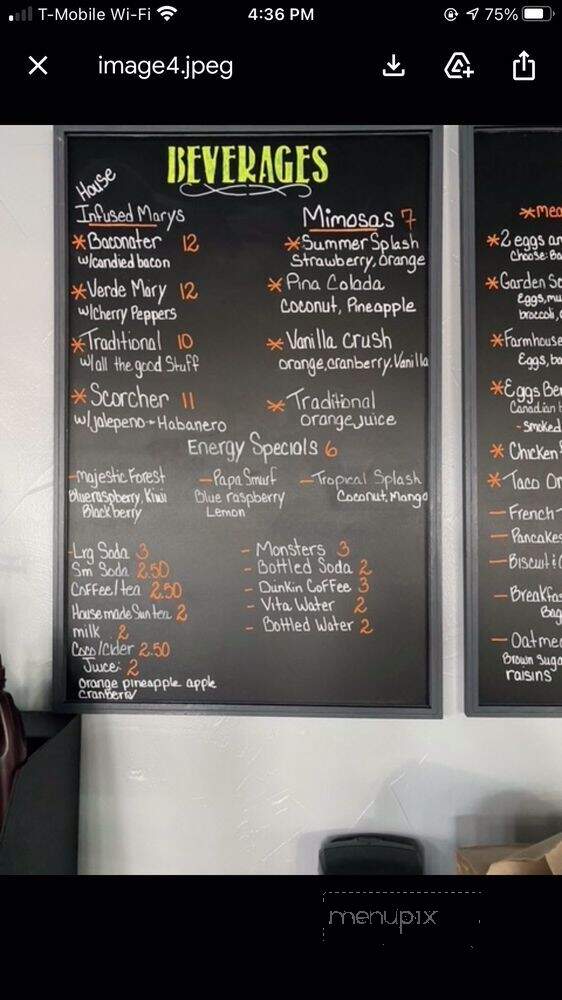 T-Mobile Wi-Fi 4:36 PM 75%
image4.jpeg
BEVERAGES
House
Infused Marys
* Baconater 12
w/candied bacon
* Verde Mary 12
w/Cherry Peppers
* Traditional 10
w/all the good Stuff
* Scorcher 11
w/jalepeno + Habanero
Mimosas 7
* Summer Splash
Strawberry, orange
* Pina Colada
Coconut, Pineapple
* Vanilla Crush
orange, cranberry. Vanilla
* Traditional
orange juice
Energy Specials 6
- Majestic Forest
Blueraspberry, Kiwi
Blackberry
- Papa Smurf
Blue raspberry
Lemon
- Tropical Splash
Coconut, Mango
- Lrg Soda 3
Sm Soda 2.50
Coffee/tea 2.50
House made Sun tea 2
milk 2
Coco/Cider 2.50
Juice: 2
orange pineapple apple
cranberry
- Monsters 3
- Bottled Soda 2
- Dunkin Coffee 3
- Vita Water 2
- Bottled Water 2
* 2 eggs
Choose:
* Garden
Eggs,
broccoli,
* Farmhouse
Eggs,
* Eggs
Canadian
- Smoked
* Chicken
* Taco
- French
- Pancakes
- Biscuit
-
- Oatmea
Brown Suga
raisins
menupix